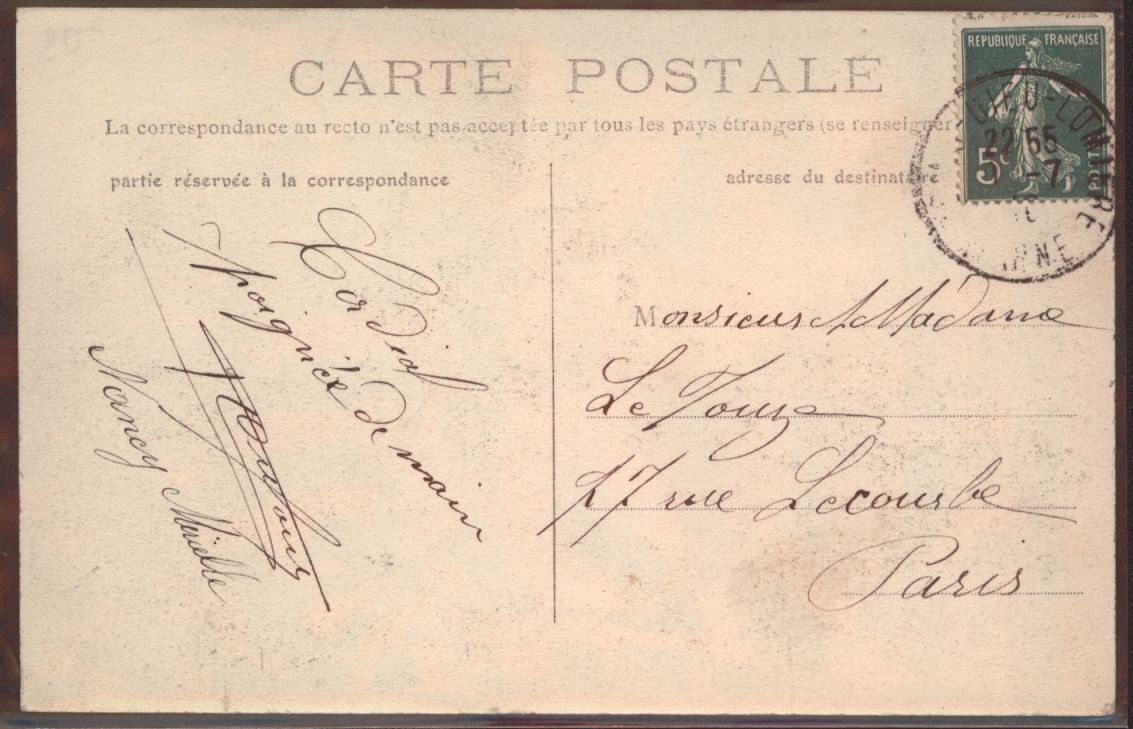 CARTE POSTALE
La correspondance au recto n'est pas acceptée par tous les pays étrangers (se renseigner
partie réservée à la correspondance
adresse du destinataire
REPUBLIQUE FRANÇAISE
5c
22 55
-7
LUMIERE
Cordial
Poignée de main
Nancy
Monsieur & Madame
Le Touze
17 rue Lecourbe
Paris